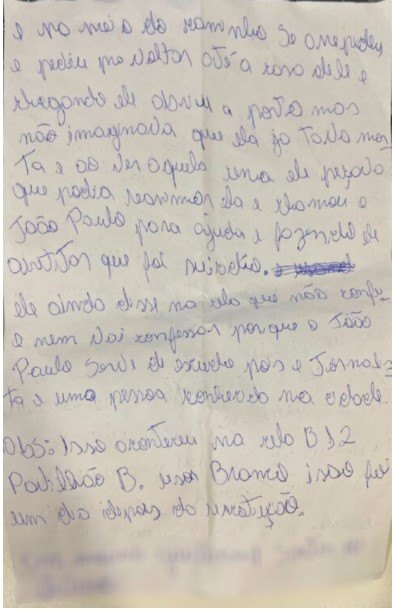 e no meio do caminho se arrependeu
e pediu pra voltar até a casa dele e
chegando ele abriu a porta mas
não imaginava que ela ja tava mor
ta e ao ver aquela cena ele pensava
que podia reanimar ela e chamou o
João Paulo para ajuda e fazendo ele
que foi suicidio.
ele ainda disse na cela que não confe-
e nem vai confessar porque o João
Paulo servi de escudo pois e Jornalis
ta e uma pessoa conhecida na cidade.
Obs: Isso aconteceu na cela B12
Pavilhão B. Branco isso foi
um dia depois da